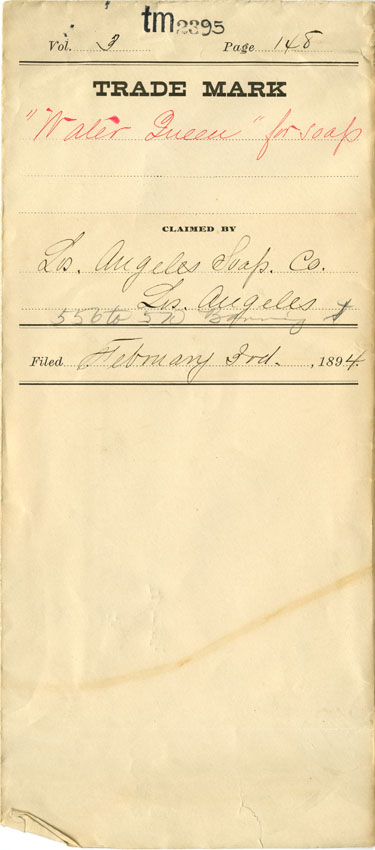 tm2395
Vol. 3 Page 148
TRADE MARK
"Water Queen" for soap
CLAIMED BY
Los. Angeles Soap. Co.
Los. Angeles
556 to 570
Filed February 3rd. , 1894.